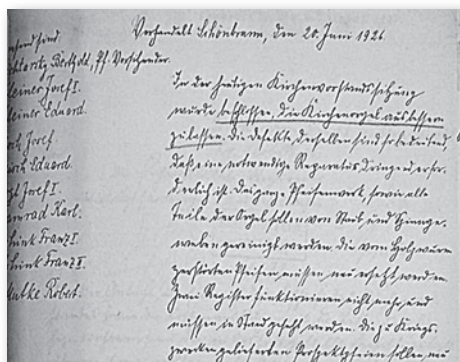 Verhandelt Schönbrunn, den 20. Juni 1926.
Berthold, Pf. Vorsitzender.
Josef I.
Eduard.
Josef
Eduard.
Josef I.
Karl.
Franz I.
Franz II.
Robert.
In der heutigen Kirchenvorstandssitzung
wurde beschlossen, die Kirchenorgel ausbessern
zu lassen. Die Defekte derselben sind so bedeutend,
daß eine notwendige Reparatur dringend erfor-
derlich ist. Das ganze Pfeifenwerk, sowie alle
Teile der Orgel sollen von Staub und Spinnge-
weben gereinigt werden. Die vom Holzwurm
zerstörten Pfeifen müssen neu ersetzt werden.
Zwei Register funktionieren nicht mehr und
müssen in Stand gesetzt werden. Die zu Kriegs-
zwecken gelieferten Prospektpfeifen sollen neu